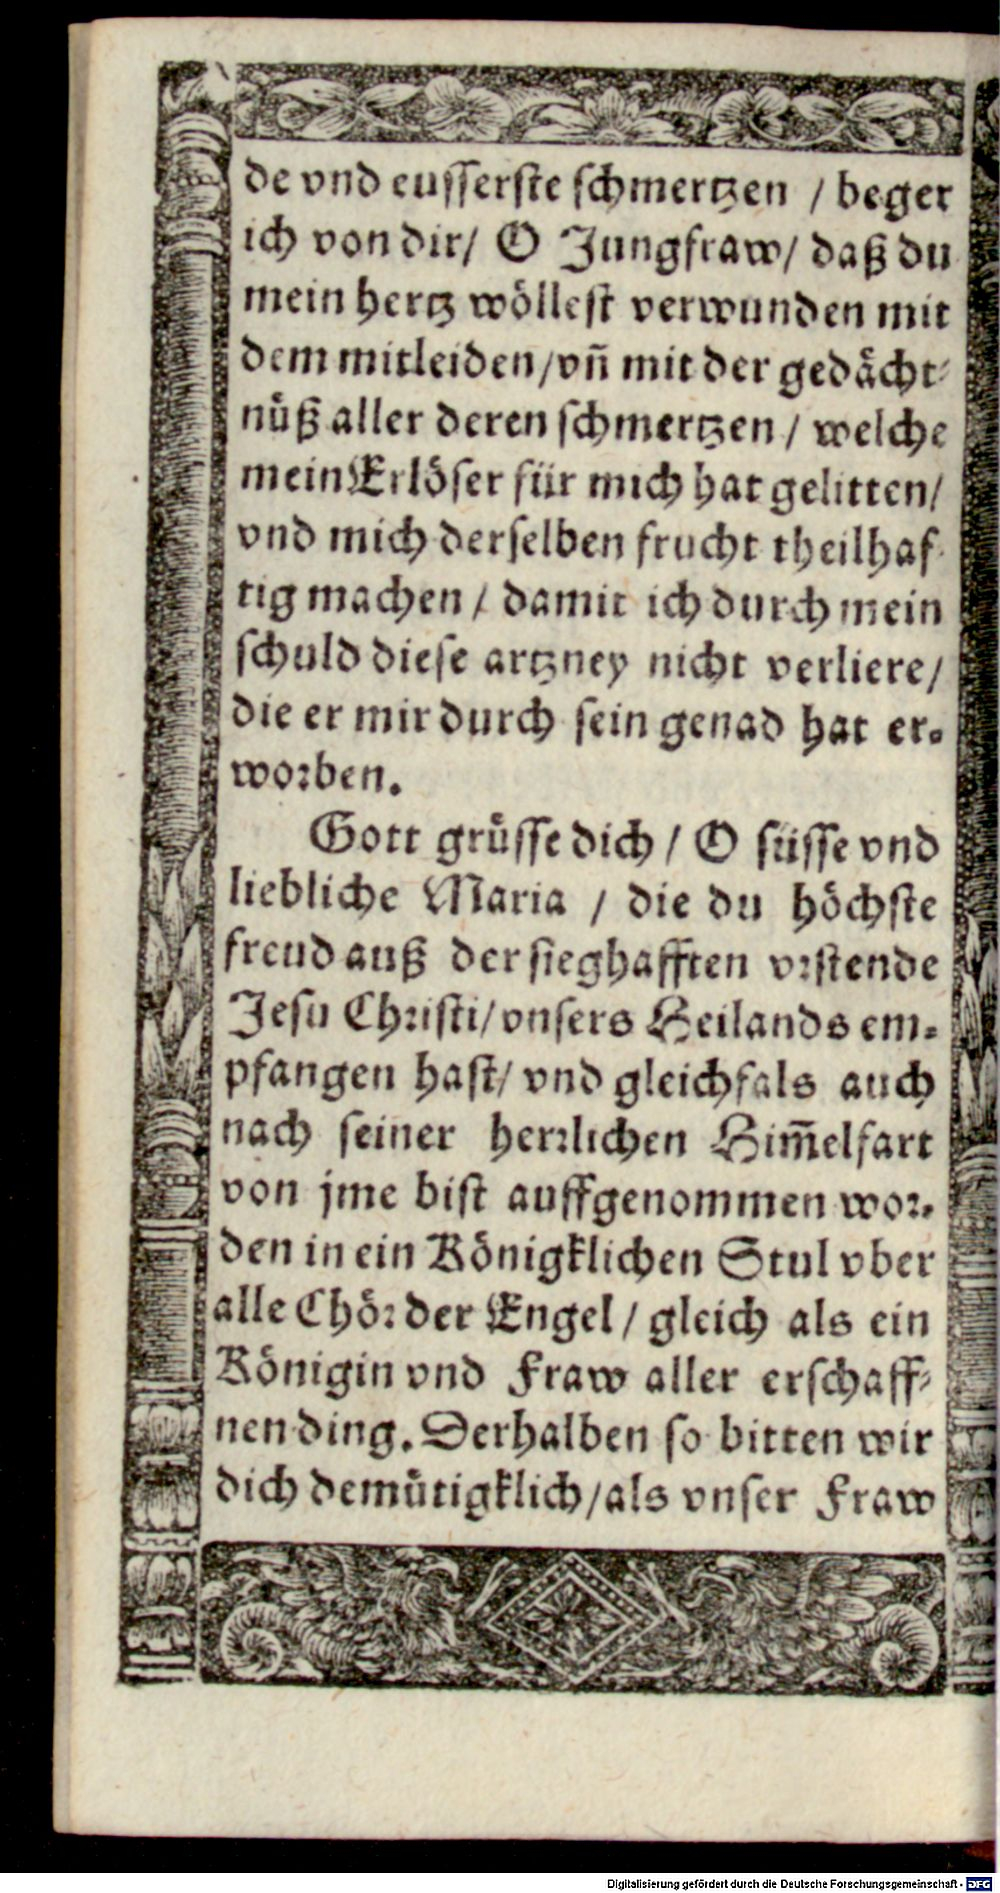 de vnd eusserste schmertzen / beger
ich von dir/ O Jungfraw/ daß du
mein hertz wöllest verwunden mit
dem mitleiden/vñ mit der gedächt-
nüß aller deren schmertzen / welche
mein Erlöser für mich hat gelitten/
vnd mich derselben frucht theilhaf-
tig machen / damit ich durch mein
schuld diese artzney nicht verliere/
die er mir durch sein genad hat er-
worben.
Gott grüsse dich / O süsse vnd
liebliche Maria / die du höchste
freud auß der sieghafften vrstende
Jesu Christi/vnsers Heilands em-
pfangen hast/ vnd gleichfals auch
nach seiner herrlichen Him̃elfart
von jme bist auffgenommen wor-
den in ein Königklichen Stul vber
alle Chör der Engel / gleich als ein
Königin vnd Fraw aller erschaff-
nen ding. Derhalben so bitten wir
dich demütigklich/als vnser Fraw
Digitalisierung gefördert durch die Deutsche Forschungsgemeinschaft - DFG